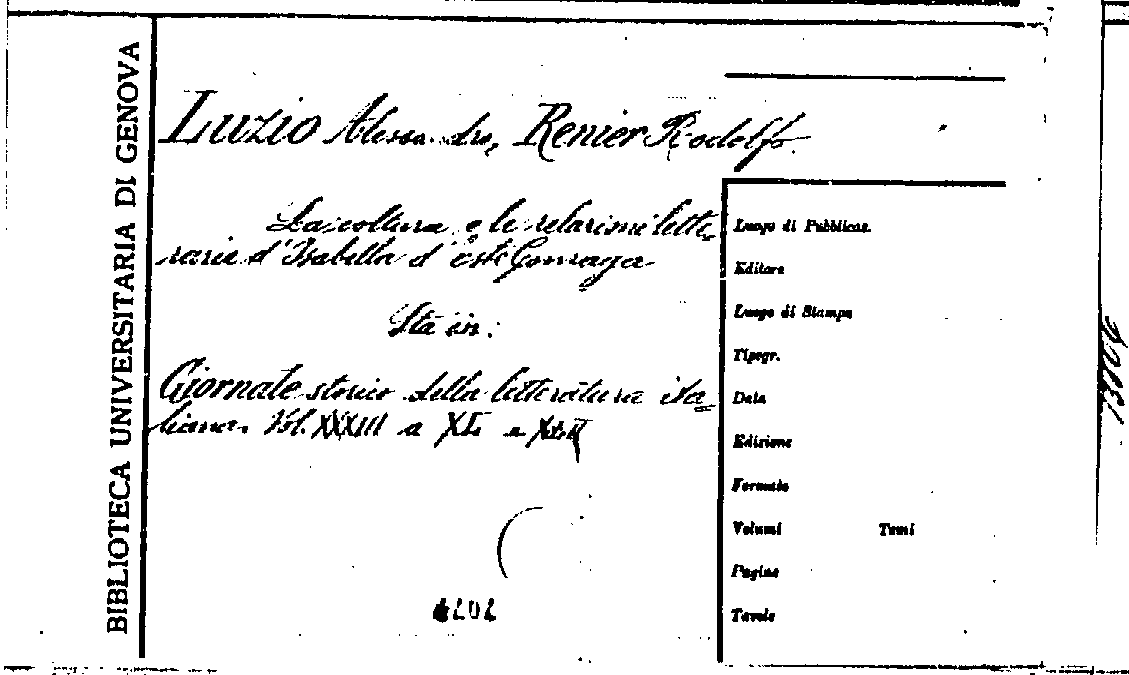 BIBLIOTECA UNIVERSITARIA DI GENOVA
Luzio Alessandro, Renier Rodolfo.
La coltura e le relazioni lette=
rarie d'Isabella d'Este Gonzaga
Sta in:
Giornale storico della letteratura ita=
liana. Vol. XXXIII a XL e
202
Luogo di Pubblicaz.
Editore
Luogo di Stampa
Tipogr.
Data
Edizione
Formato
Volumi Tomi
Pagine
Tavole